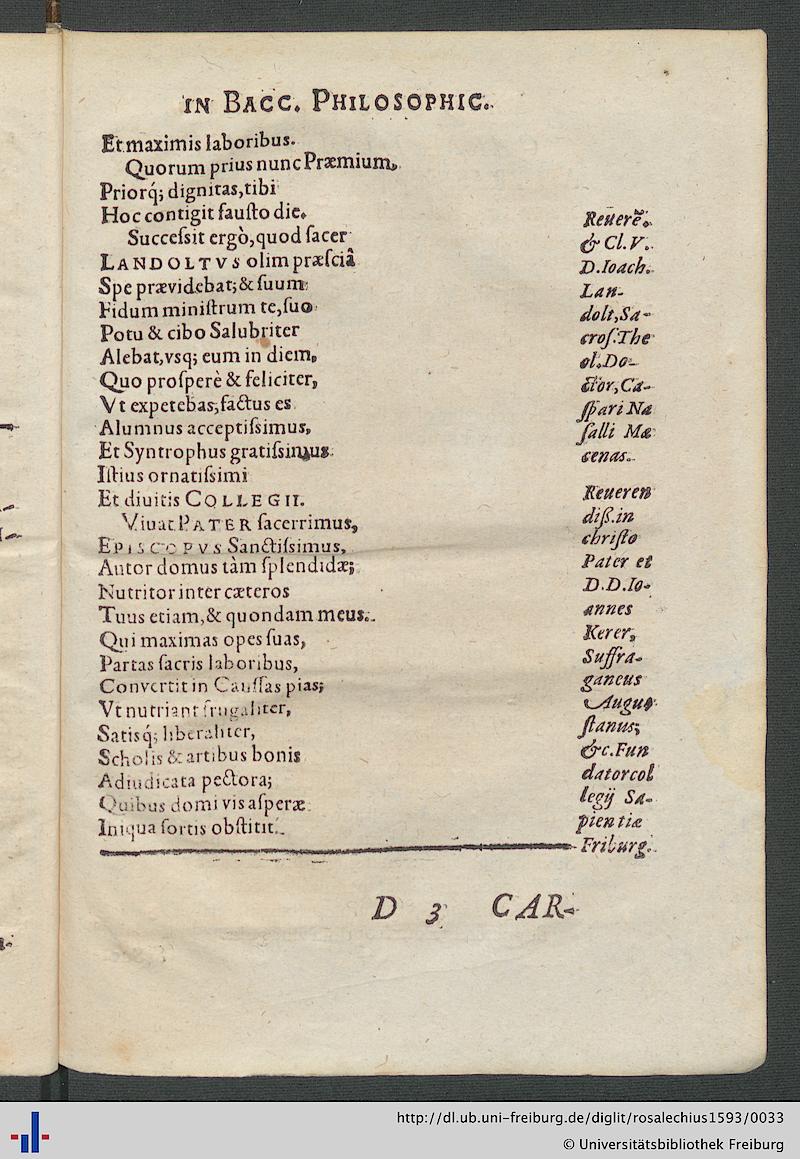 IN BACC. PHILOSOPHIC.
Et maximis laboribus.
Quorum prius nunc Præmium,
Priorq́; dignitas, tibi
Hoc contigit fauſto die.
Succeſsit ergò, quod ſacer
LANDOLTVS olim præſciâ
Spe prævidebat; & ſuum
Fidum miniſtrum te, ſuo
Potu & cibo Salubriter
Alebat, vsq; eum in diem,
Quo proſperè & feliciter,
Vt expetebas, factus es
Alumnus acceptiſsimus,
Et Syntrophus gratiſsimus
Iſtius ornatiſsimi
Et diuitis COLLEGII.
Viuat PATER ſacerrimus,
EPISCOPVS Sanctiſsimus,
Autor domus tàm ſplendidæ;
Nutritor inter cæteros
Tuus etiam, & quondam meus.
Qui maximas opes ſuas,
Partas ſacris laboribus,
Convertit in Cauſſas pias;
Vt nutriant frugaliter,
Satisq́; liberaliter,
Scholis & artibus bonis
Adiudicata pectora;
Quibus domi vis aſperæ
Iniqua ſortis obſtitit.
Reuerē.
& Cl. V.
D. Ioach.
Lan-
dolt, Sa-
croſ. The
ol. Do-
ctor, Ca-
ſpari Na
ſalli Mæ
cenas.
Reueren
diß. in
chriſto
Pater et
D. D. Io-
annes
Kerer,
Suffra-
ganeus
Augu
ſtanus;
&c. Fun
dator col
legij Sa-
pientiæ
Friburg.
D 3 CAR-
http://dl.ub.uni-freiburg.de/diglit/rosalechius1593/0033
© Universitätsbibliothek Freiburg